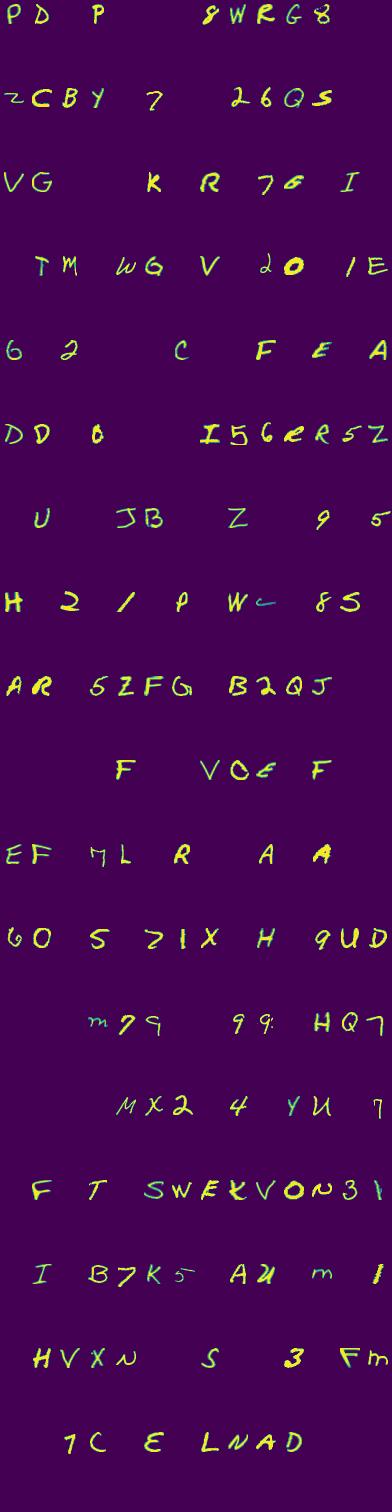 PD P 8WRG8
ZCBY 7 26QS
VG K R 7G I
TM WG V 20 1E
6 2 C F E A
DD 0 I56eR5Z
U JB Z 9 5
H 2 1 P WC 8S
AR 5ZFG B2QJ
F VOE F
EF 7L R A A
60 5 71X H 9UD
m79 99 HQ7
MX2 4 YU 7
F T SWEKVON31
I B7K5 AU m 1
HVXN S 3 Fm
7C E LNAD